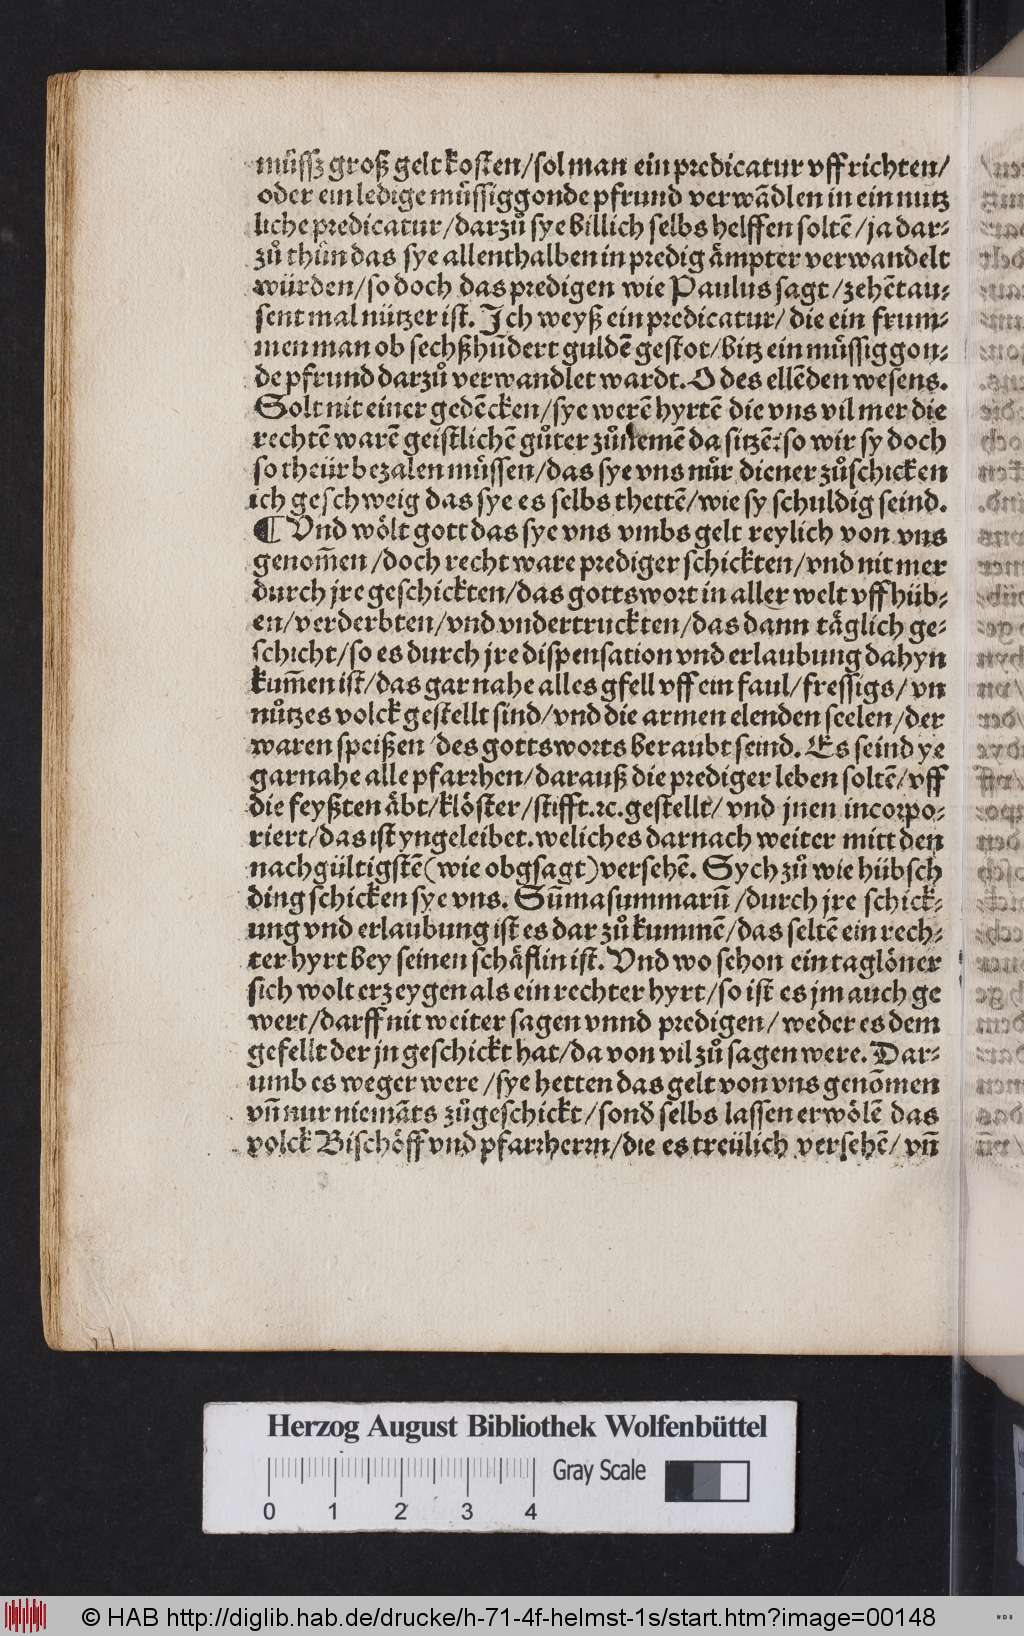 můſſz groß gelt koſten/ſol man ein predicatur vff richten/
oder ein ledige můſſiggonde pfrund verwãdlen in ein nutz
liche predicatur/darzů ſye billich ſelbs helffen ſoltẽ/ja dar⸗
zů thůn das ſye allenthalben in predig åmpter verwandelt
würden/ſo doch das predigen wie Paulus ſagt/zehẽtau⸗
ſent mal nützer iſt. Ich weyß ein predicatur/ die ein frum⸗
men man ob ſechßhũdert guldẽ geſtot/bitz ein můſſiggon⸗
de pfrund darzů verwandlet wardt. O des ellẽden weſens.
Solt nit einer gedẽcken/ſye werẽ hyrtẽ die vns vil mer die
rechtẽ warẽ geiſtlichẽ gůter zůnemẽ da ſitzẽ: ſo wir ſy doch
ſo theür bezalen můſſen/das ſye vns nůr diener zůſchicken
ich geſchweig das ſye es ſelbs thettẽ/wie ſy ſchuldig ſeind.
¶ Vnd wölt gott das ſye vns vmbs gelt reylich von vns
genom̃en/doch recht ware prediger ſchickten/vnd nit mer
durch jre geſchickten/das gottswort in aller welt vff hüb⸗
en/verderbten/vnd vndertruckten/das dann täglich ge⸗
ſchicht/ſo es durch jre diſpenſation vnd erlaubung dahyn
kum̃en iſt/das gar nahe alles gfell vff ein faul/freſſigs/ vn
nůtzes volck geſtellt ſind/vnd die armen elenden ſeelen/der
waren ſpeißen des gottsworts beraubt ſeind. Es ſeind ye
garnahe alle pfarrhen/darauß die prediger leben ſoltẽ/vff
die feyßten äbt/klöſter/ſtifft.ꝛc.geſtellt/ vnd jnen incorpo⸗
riert/das iſt yngeleibet.weliches darnach weiter mitt den
nachgültigſtẽ(wie obgſagt)verſehẽ. Sych zů wie hübſch
ding ſchicken ſye vns. Sũmaſummarũ/durch jre ſchick⸗
ung vnd erlaubung iſt es dar zů kummẽ/das ſeltẽ ein rech⸗
ter hyrt bey ſeinen ſchäflin iſt. Vnd wo ſchon ein taglöner
ſich wolt erzeygen als ein rechter hyrt/ſo iſt es jm auch ge
wert/darff nit weiter ſagen vnnd predigen/ weder es dem
gefellt der jn geſchickt hat/da von vil zů ſagen were. Dar⸗
umb es weger were/ſye hetten das gelt von vns genõmen
vñ nur niemãts zůgeſchickt/ſond̃ ſelbs laſſen erwölẽ das
volck Biſchöff vnd pfarrherrn/die es treülich verſehẽ/ vñ
Herzog August Bibliothek Wolfenbüttel
Gray Scale
0 1 2 3 4
© HAB http://diglib.hab.de/drucke/h-71-4f-helmst-1s/start.htm?image=00148